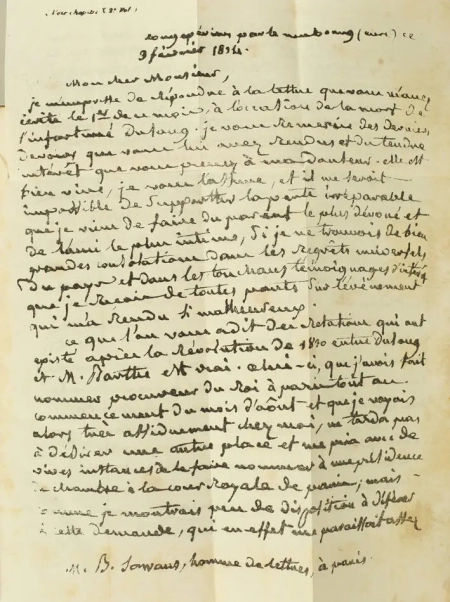 (Voir chapitre 3e Vol)
rouge périers par le neubourg (eure) ce
9 février 1834.
Mon cher Monsieur,
je m'empresse de répondre à la lettre que vous m'avez
écrite le 1er de ce mois, à l'occasion de la mort de
l'infortuné Dulong. je vous remercie des derniers
devoirs que vous lui avez rendus et du tendre
intérêt que vous prenez à ma douleur. elle est
bien vive, je vous l'assure, et il me seroit
impossible de supporter la perte irréparable
que je viens de faire du parent le plus dévoué et
de l'ami le plus intime, si je ne trouvois de bien
grandes consolations dans les regrets universels
du pays et dans les touchans témoignages d'intérêt
que je reçois de toutes parts sur l'événement
qui m'a rendu si malheureux.
ce que l'on vous a dit des relations qui ont
existé après la révolution de 1830 entre Dulong
et M. Barthe est vrai. celui-ci, que j'avois fait
nommer procureur du Roi à paris tout au
commencement du mois d'août et que je voyois
alors très assiduement chez moi, ne tarda pas
à désirer une autre place et me pria avec de
vives instances de le faire nommer à une présidence
de chambre à la cour royale de paris; mais
comme je montrois peu de disposition à déférer
à cette demande, qui en effet me paraissoit assez
M. B. Sarrans, homme de lettres, à paris.